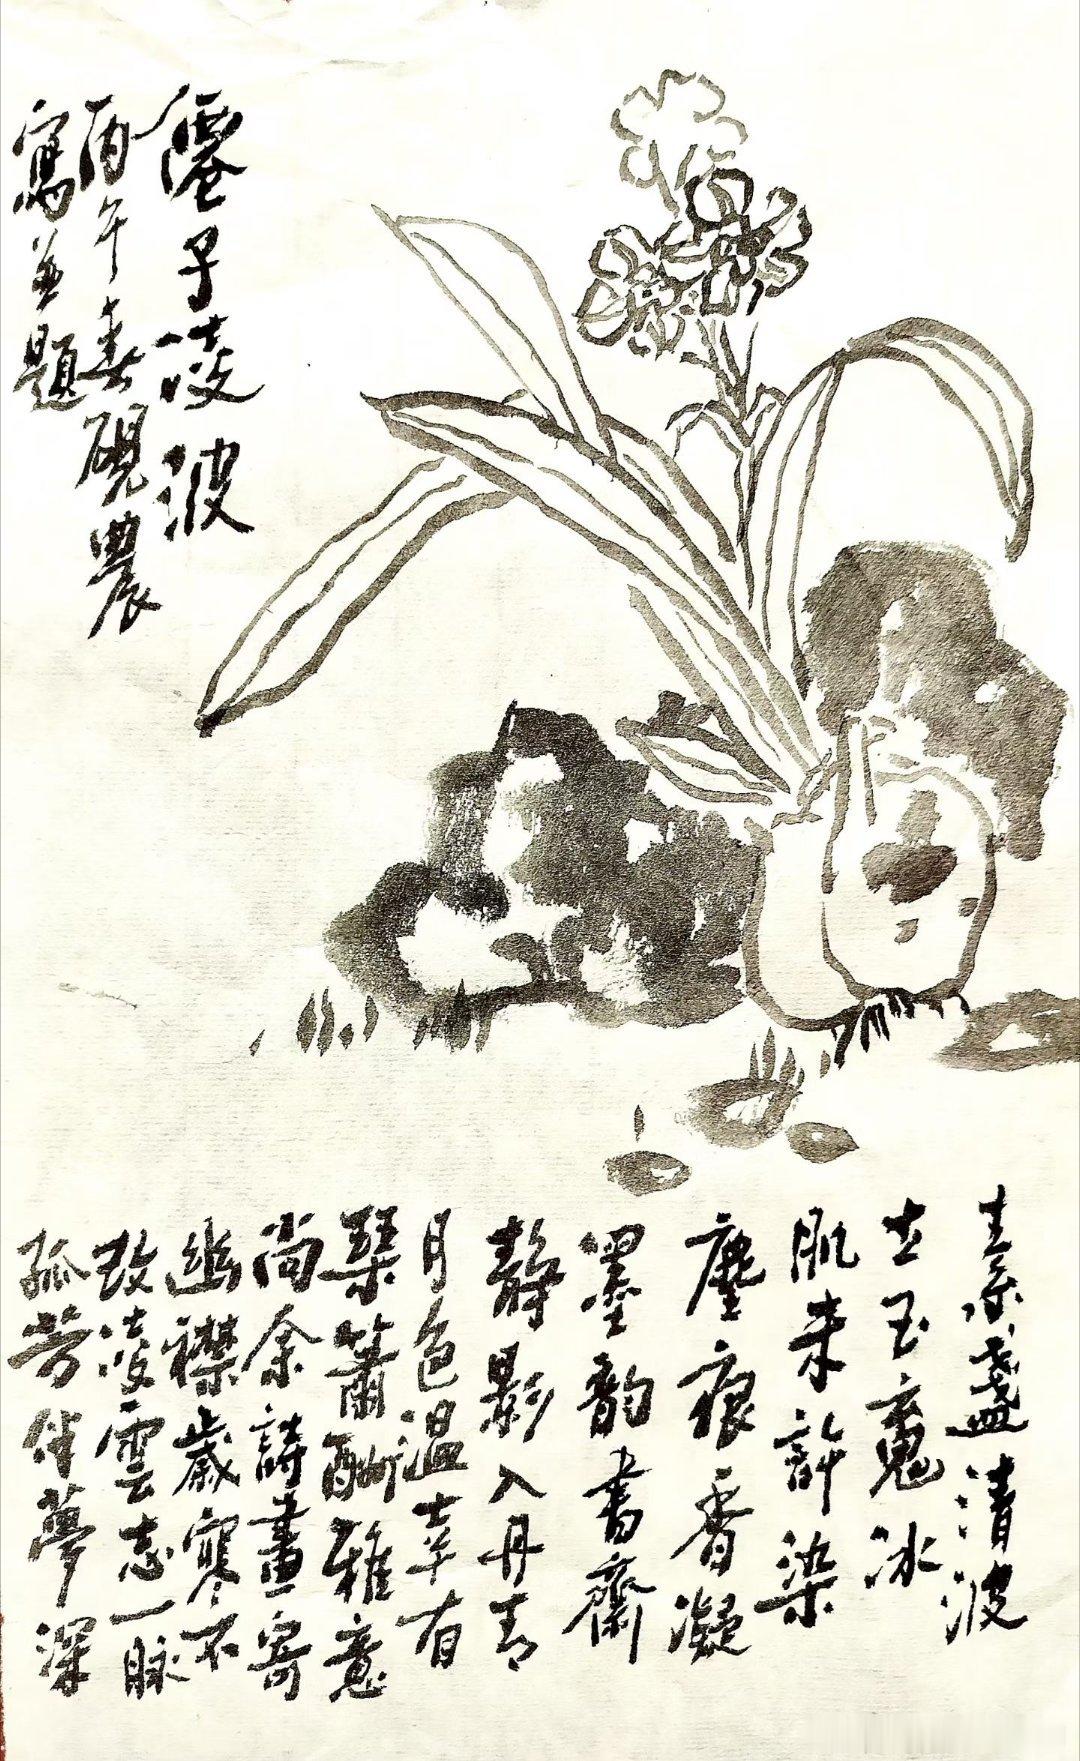 僊子凌波
丙午春硯農
寫並題
素盞清波
立玉魂冰
肌未許染
塵痕香凝
墨韵書齋
静影入丹青
月色温幸有
琴簫酬雅意
尚余詩畫寄
幽襟歲寒不
改凌雲志一脉
孤芳伴夢深